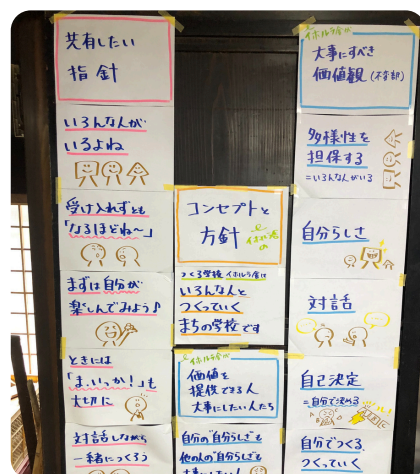 共有したい
指針
いろんな人が
いるよね
受け入れずとも
「なるほどね〜」
まずは自分が
楽しんでみよう♪
ときには
「ま、いっか!」も
大切に
対話しながら
一緒につくろう
コンセプトと
方針
つくる学校 イホルラ舎は
いろんな人と
つくっていく
まちの学校です
イホルラ舎が
価値を
提供できる人
大事にしたい人たち
自分の"自分らしさ"も
他の人の"自分らしさ"も
大事にしたい人
イホルラ舎が
大事にすべき
価値観
多様性を
担保する
=いろんな人がいる
自分らしさ
対話
自己決定
=自分で決める
A
B
C
自分でつくる
つくっていく